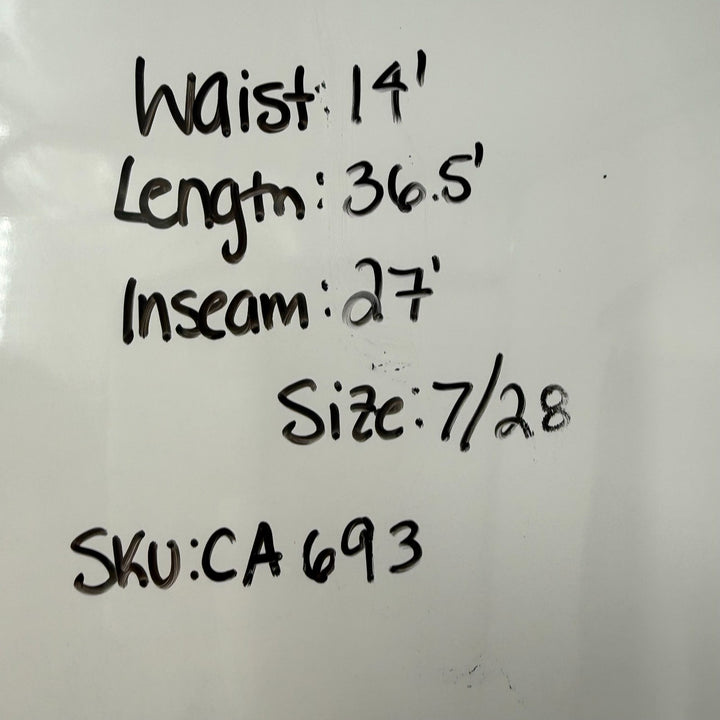 Waist: 14'
Length: 36.5'
Inseam: 27'
Size: 7/28
SKU: CA 693